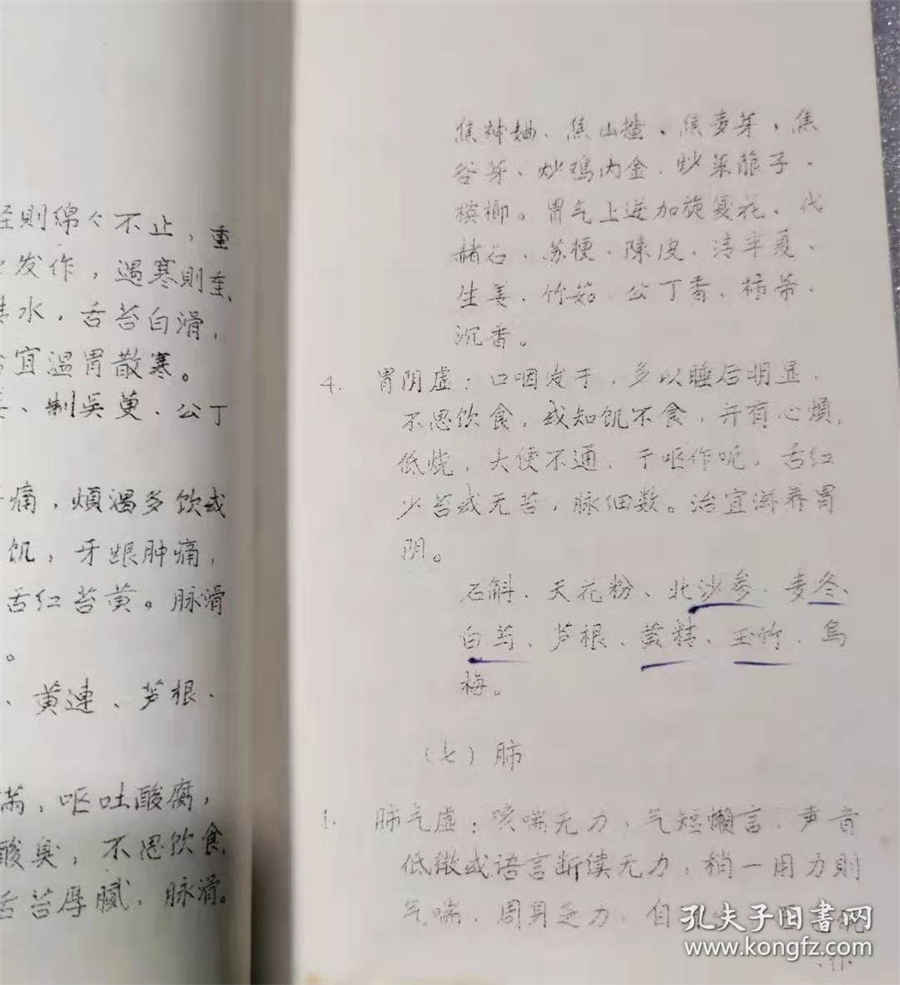 轻则绵々不止，重
发作，遇寒則重、
水，舌苔白滑，
宜温胃散寒。
、制吴萸、公丁
痛，煩渴多饮或
饥，牙龈肿痛，
舌红苔黄。脉滑
。
、黄連、芦根、
满，呕吐酸腐，
酸臭，不思饮食
舌苔厚腻，脉滑。
焦神曲、焦山楂、焦麦芽，焦
谷芽、炒鸡内金、炒莱菔子、
槟榔。胃气上逆加旋复花、代
赭石、苏梗、陳皮、清半夏、
生姜、竹茹、公丁香、柿蒂、
沉香。
4. 胃阴虚：口咽发干，多以睡后明显，
不思饮食，或知饥不食，并有心煩，
低烧，大便不通，干呕作呃，舌红
少苔或无苔，脉细数。治宜滋养胃
阴。
石斛、天花粉、北沙参、麦冬、
白芍、芦根、黄精、玉竹、乌
梅。
（七）肺
1. 肺气虚：咳喘无力，气短懒言，声音
低微或语言断续无力，稍一用力則
气喘，周身乏力，自
孔夫子旧書网
www.kongfz.com
·11·